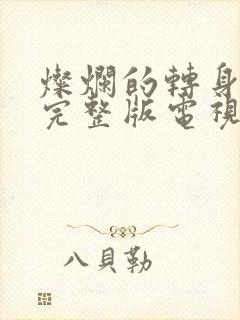 燦爛的轉身
完整版電視
八貝勒